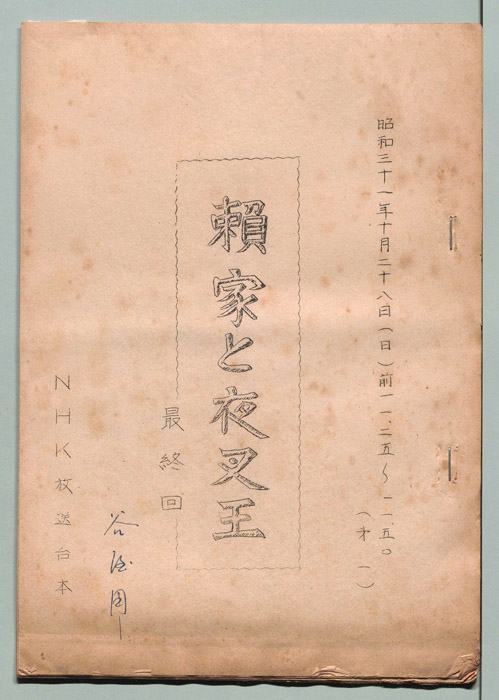 昭和三十一年十月二十八日(日)前一一.二五〜一一.五〇
(才一)
頼家と夜叉王
最終回
NHK放送台本